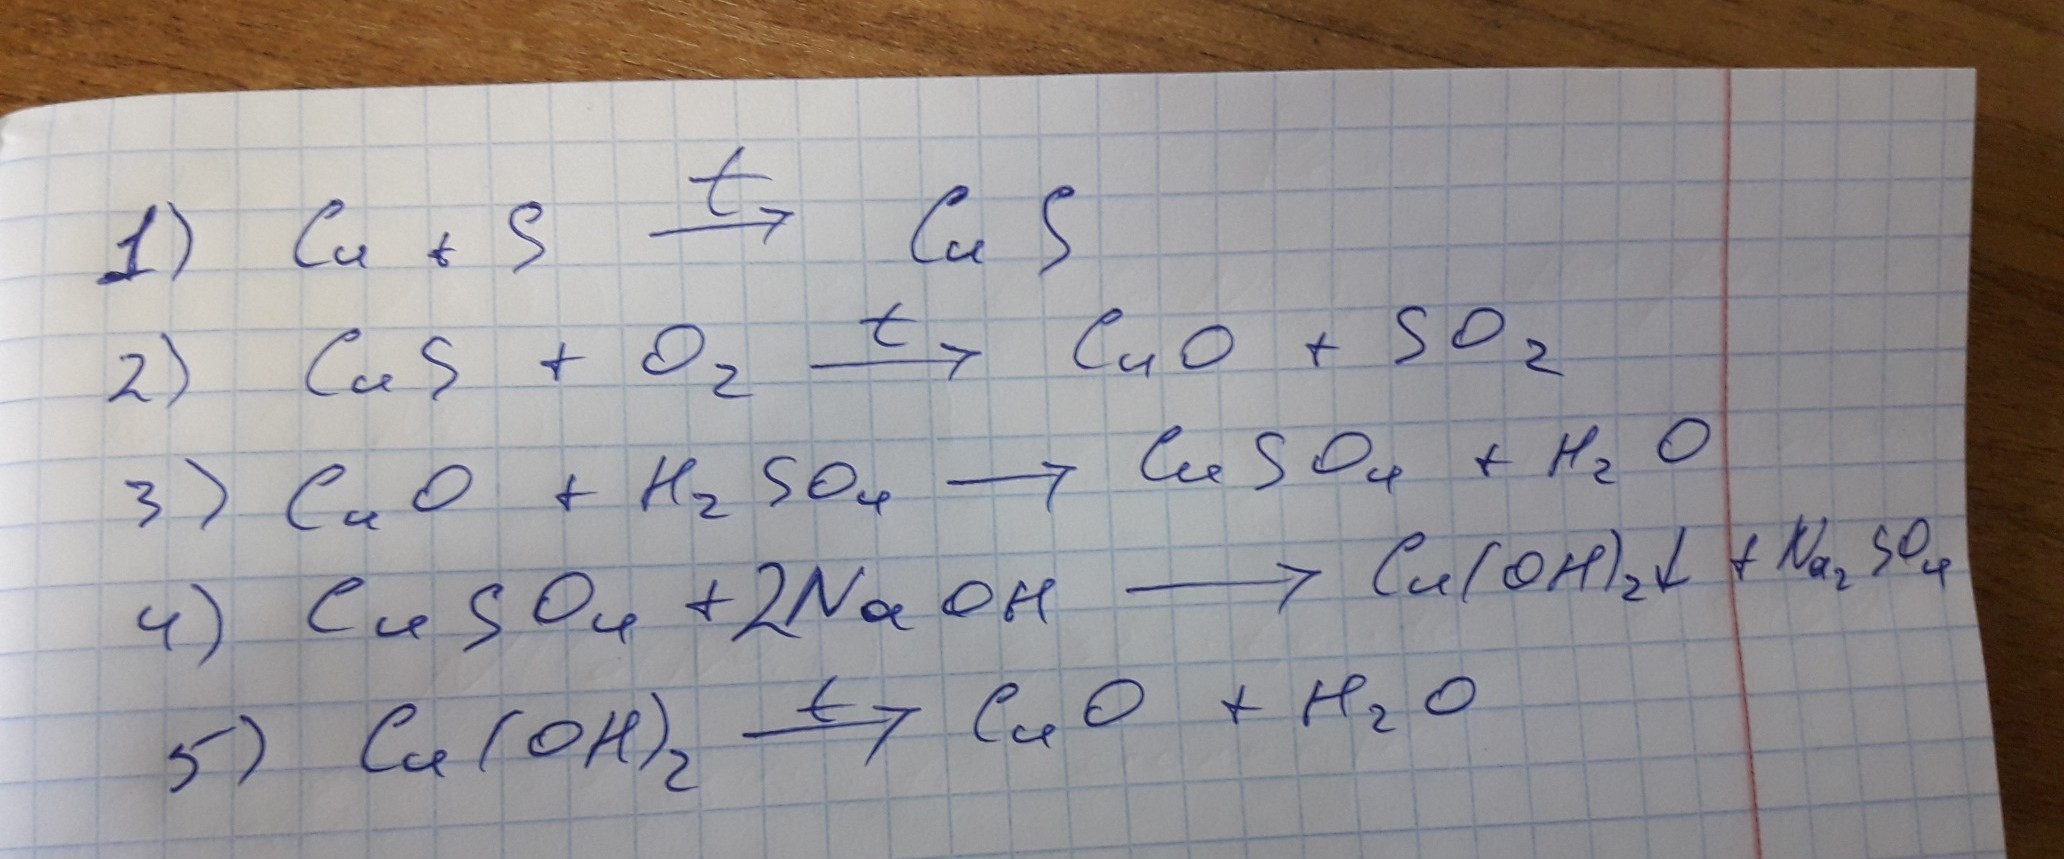 1) Cu + S →t CuS
2) CuS + O₂ →t CuO + SO₂
3) CuO + H₂SO₄ → CuSO₄ + H₂O
4) CuSO₄ + 2NaOH → Cu(OH)₂↓ + Na₂SO₄
5) Cu(OH)₂ →t CuO + H₂O